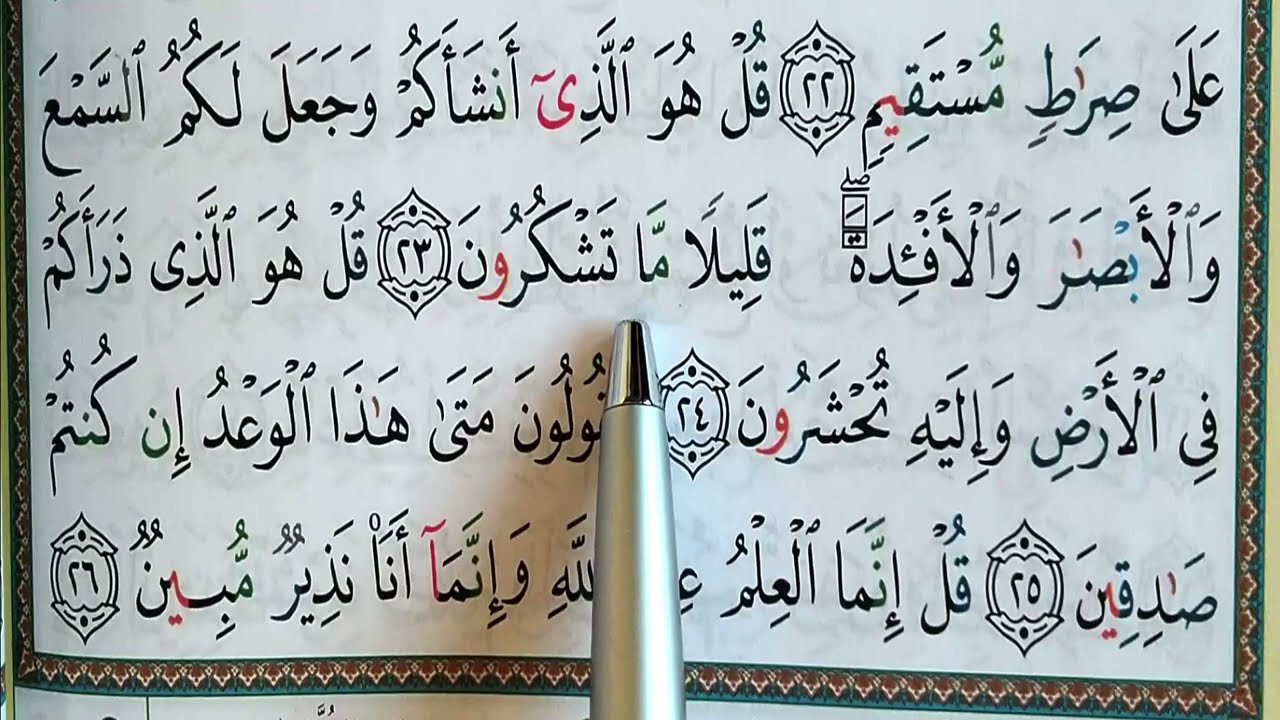 عَلَىٰ صِرَٰطٍ مُّسْتَقِيمٍ ٢٢ قُلْ هُوَ ٱلَّذِىٓ أَنشَأَكُمْ وَجَعَلَ لَكُمُ ٱلسَّمْعَ
وَٱلْأَبْصَٰرَ وَٱلْأَفْـِٔدَةَ ۖ قَلِيلًا مَّا تَشْكُرُونَ ٢٣ قُلْ هُوَ ٱلَّذِى ذَرَأَكُمْ
فِى ٱلْأَرْضِ وَإِلَيْهِ تُحْشَرُونَ ٢٤ مَتَىٰ هَٰذَا ٱلْوَعْدُ إِن كُنتُمْ
صَٰدِقِينَ ٢٥ قُلْ إِنَّمَا ٱلْعِلْمُ وَإِنَّمَآ أَنَا۠ نَذِيرٌ مُّبِينٌ ٢٦